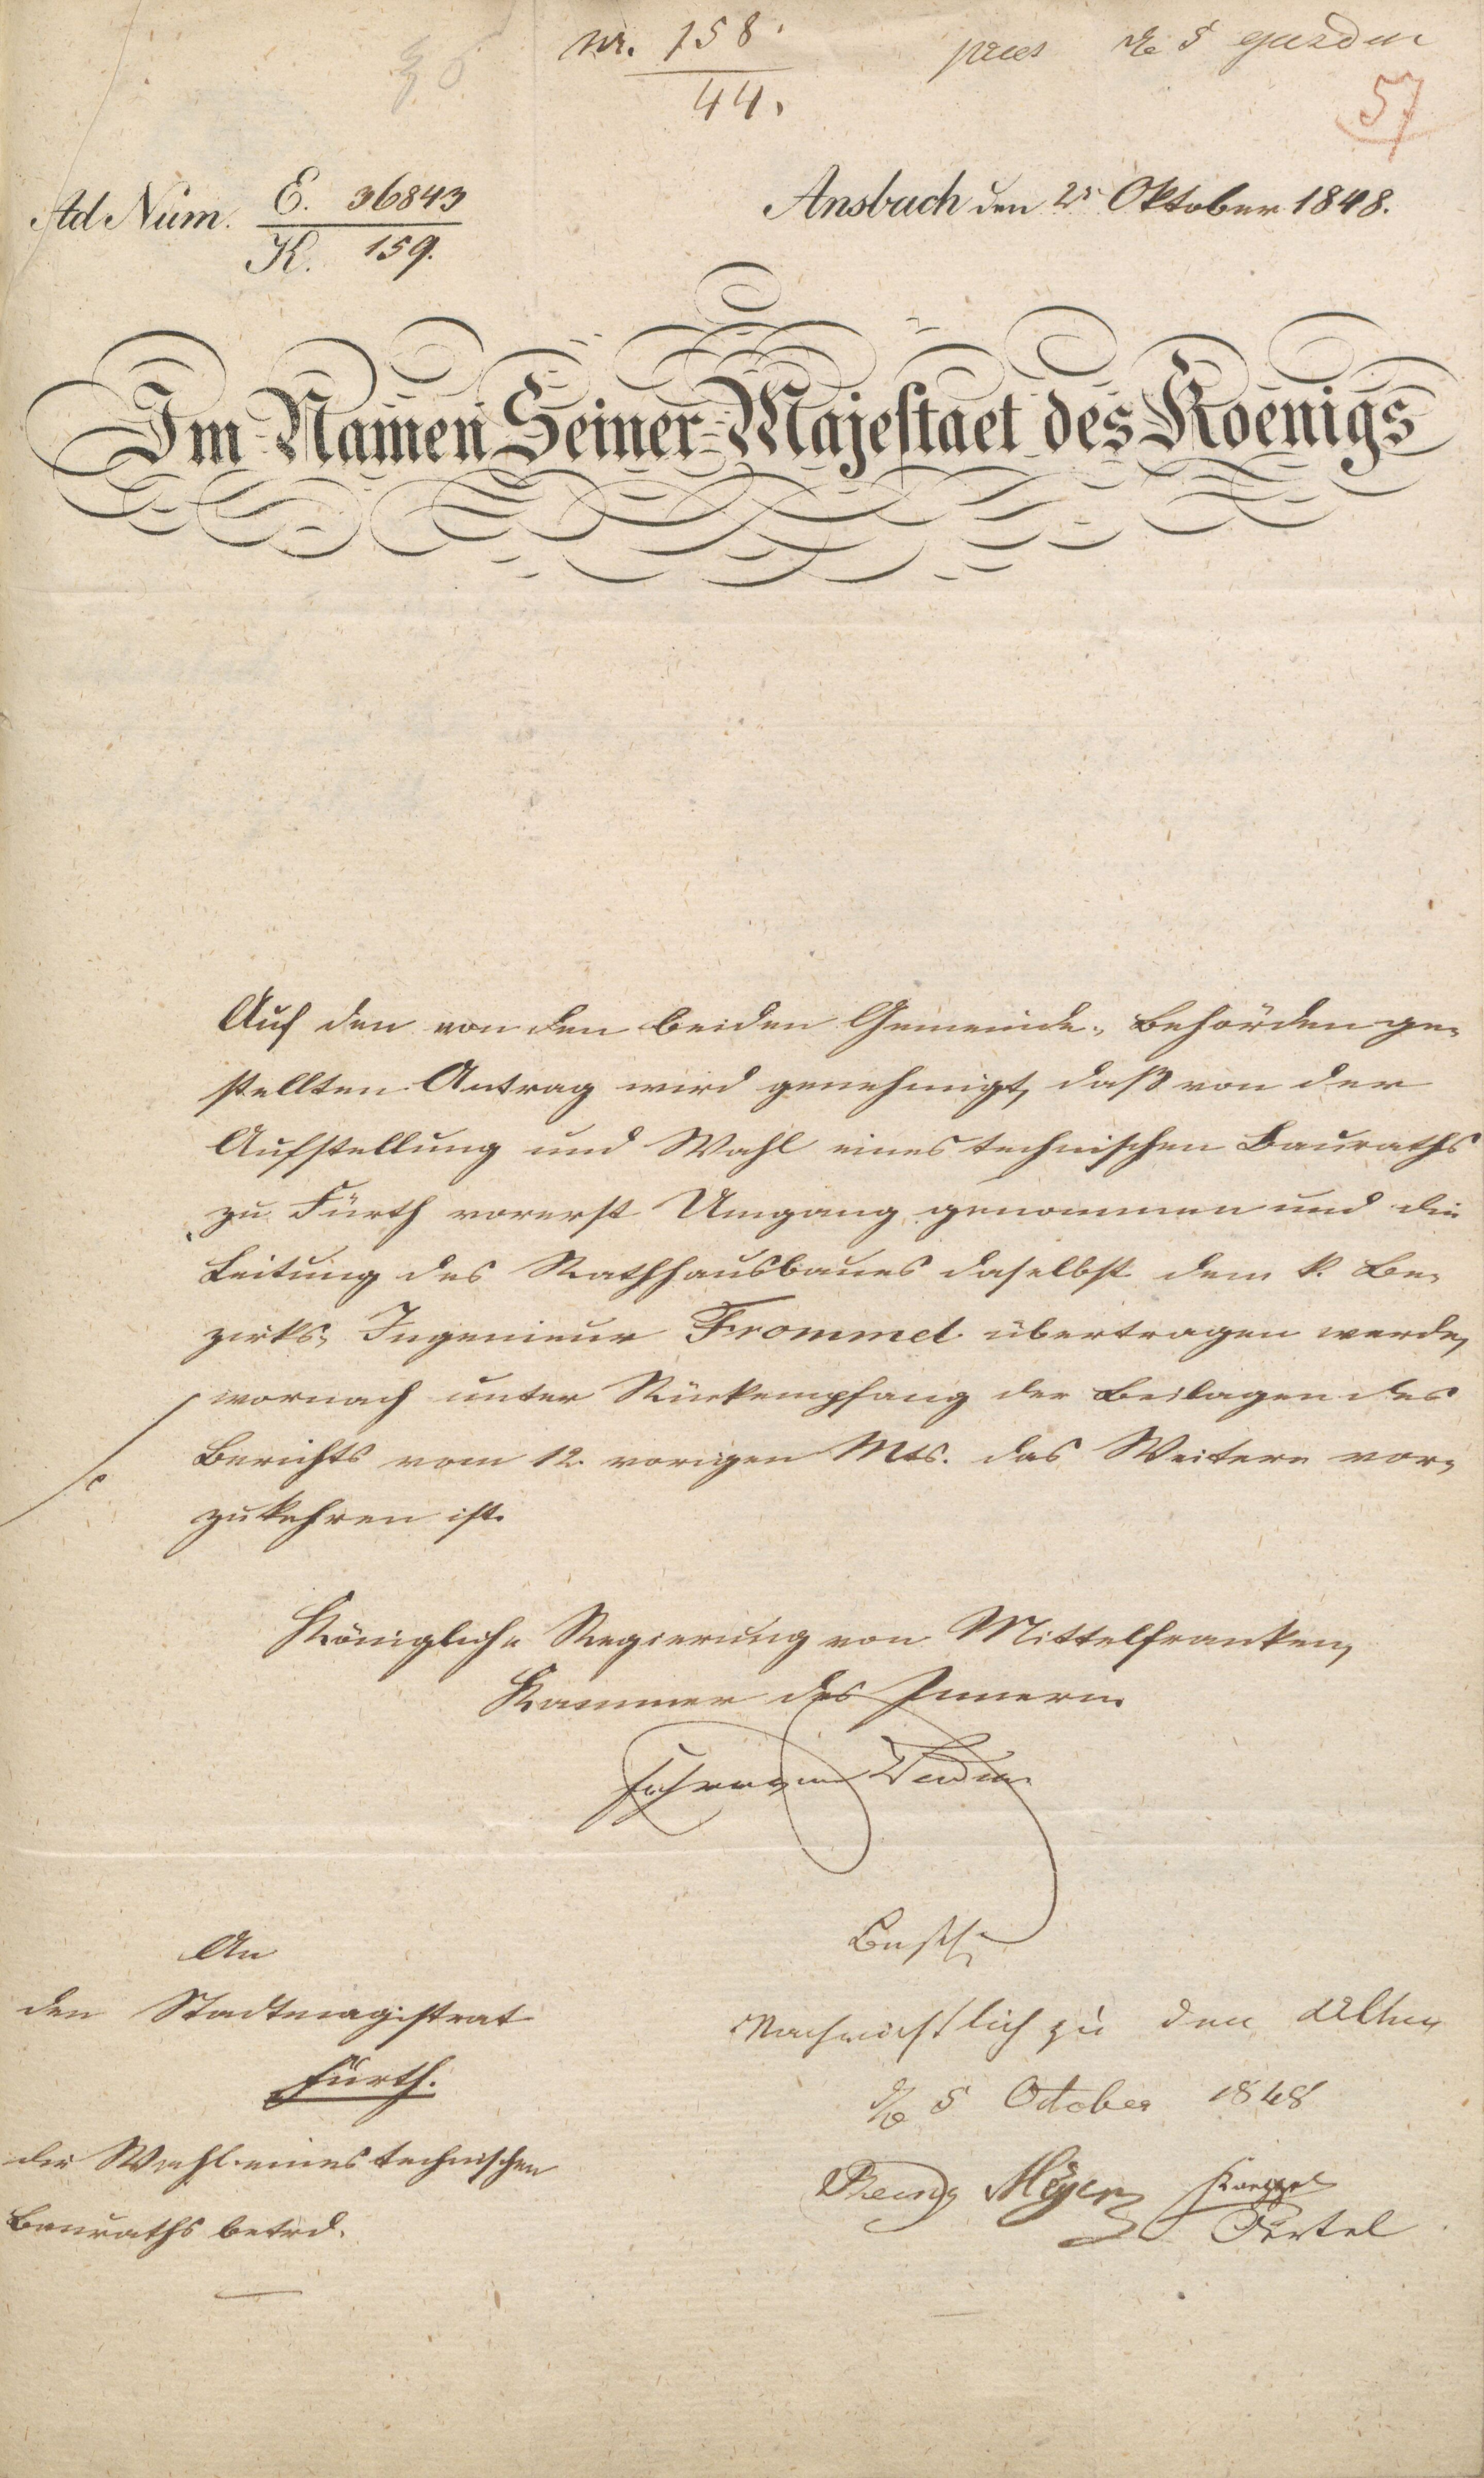 Nr. 158.
44.
57
Ad Num. E. 36843
K. 159.
Ansbach den 2n Oktober 1848.
Im Namen Seiner Majestaet des Koenigs
Auf den von den beiden Gemeinde-Behörden ge-
stellten Antrag wird genehmigt, daß von der
Aufstellung und Wahl eines technischen Bauraths
zu Fürth vorerst Umgang genommen und die
Leitung des Rathhausbaues daselbst dem k. Be-
zirks-Ingenieur Frommel übertragen werde,
wornach unter Rückempfang der Beilagen des
Berichts vom 12. vorigen Mts. das Weitere vor-
zukehren ist.
Königliche Regierung von Mittelfranken,
Kammer des Innern.
An
den Stadtmagistrat
Fürth.
die Wahl eines technischen
Bauraths betrd.
Nachrichtlich zu den Akten
5 October 1848
Meyer